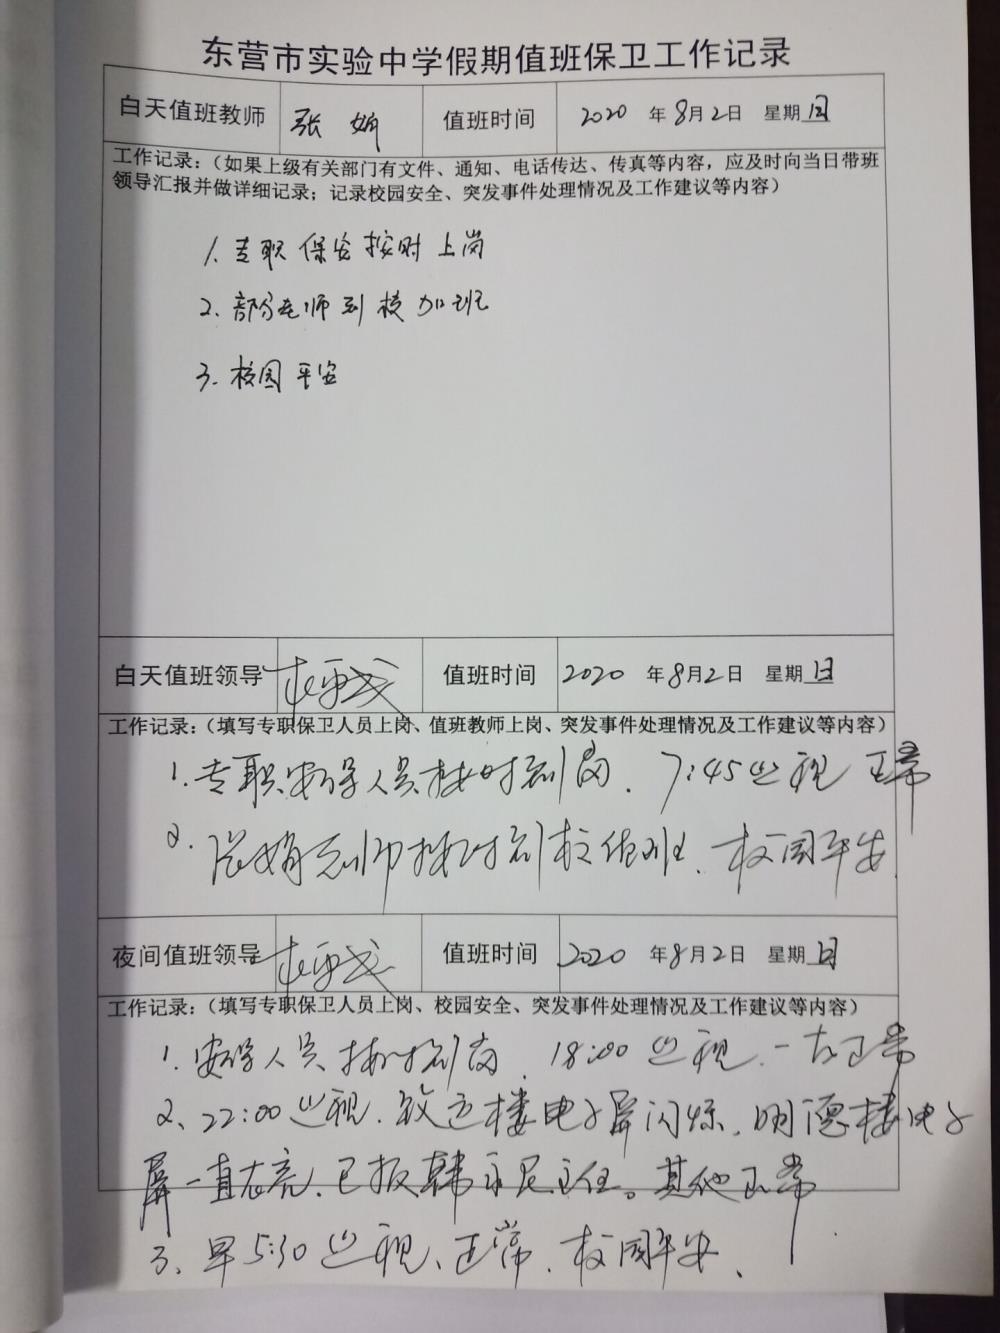 东营市实验中学假期值班保卫工作记录
白天值班教师 张娟 值班时间 2020 年8月2日 星期日
工作记录：（如果上级有关部门有文件、通知、电话传达、传真等内容，应及时向当日带班
领导汇报并做详细记录；记录校园安全、突发事件处理情况及工作建议等内容）
1. 专职保安按时上岗
2. 部分老师到校加班
3. 校园平安
白天值班领导 值班时间 2020 年8月2日 星期日
工作记录：（填写专职保卫人员上岗、值班教师上岗、突发事件处理情况及工作建议等内容）
1. 专职安保人员按时到岗. 7:45巡视 正常
2. 张娟老师按时到校值班. 校园平安
夜间值班领导 值班时间 2020 年8月2日 星期日
工作记录：（填写专职保卫人员上岗、校园安全、突发事件处理情况及工作建议等内容）
1. 安保人员按时到岗. 18:00 巡视. 一切正常
2、22:00巡视. 楼电子屏闪烁. 明德楼电子
屏一直在亮. 已报韩主任。其他正常
3、早5:30巡视、正常. 校园平安.